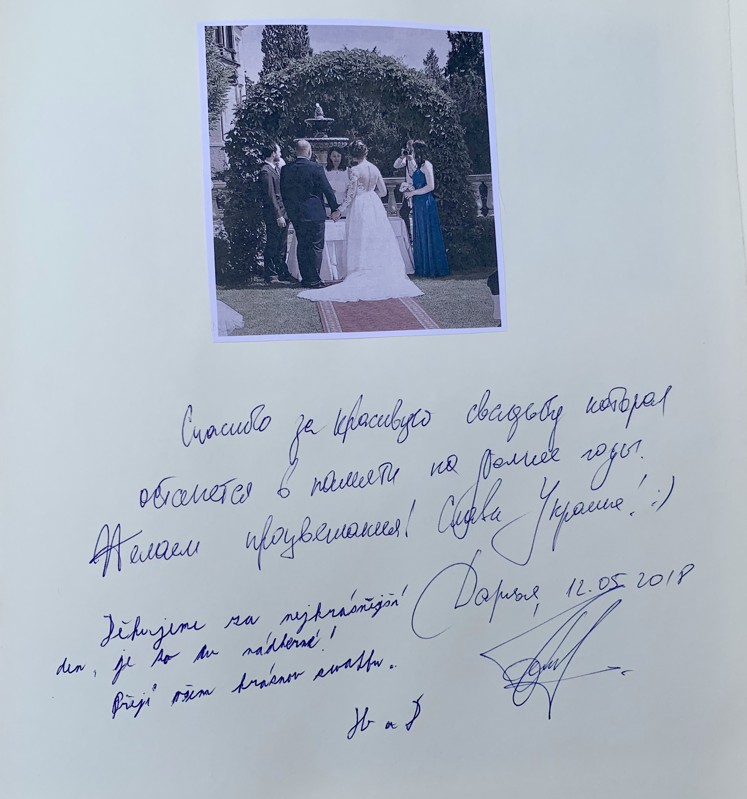 Спасибо за красивую свадьбу которая
останется в памяти на долгие годы.
Желаем процветания! Слава Украине! :)
Дарья, 12.05 2018
Děkujeme za nejkrásnější
den, je to tu nádherné!
Přeji všem krásnou svatbu.
a